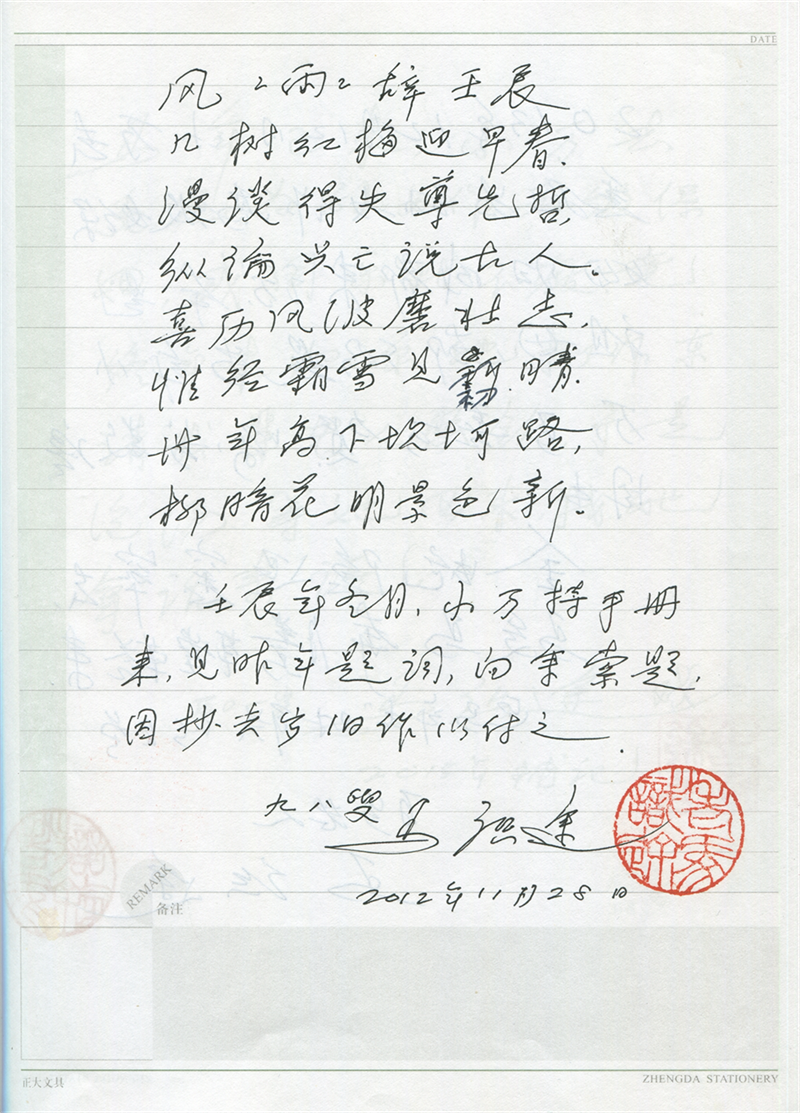 DATE
风〻雨〻辞壬辰
几树红梅迎早春.
漫谈得失尊先哲,
纵论兴亡说古人。
喜历风波磨壮志,
惟经霜雪见初晴.
卅年高下坎坷路,
柳暗花明景色新。
壬辰年冬月,小万持手册
来,见昨年题词,向余索题,
因抄去岁旧作以付之.
九八叟 马识途
2012年11月28日
REMARK
备注
正大文具
ZHENGDA STATIONERY